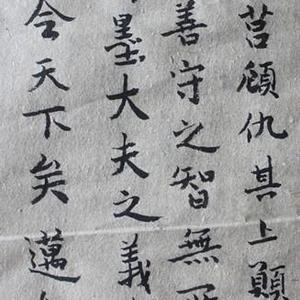 莒顧仇其上願
善守之智無
墨大夫之義
令天下矣邁